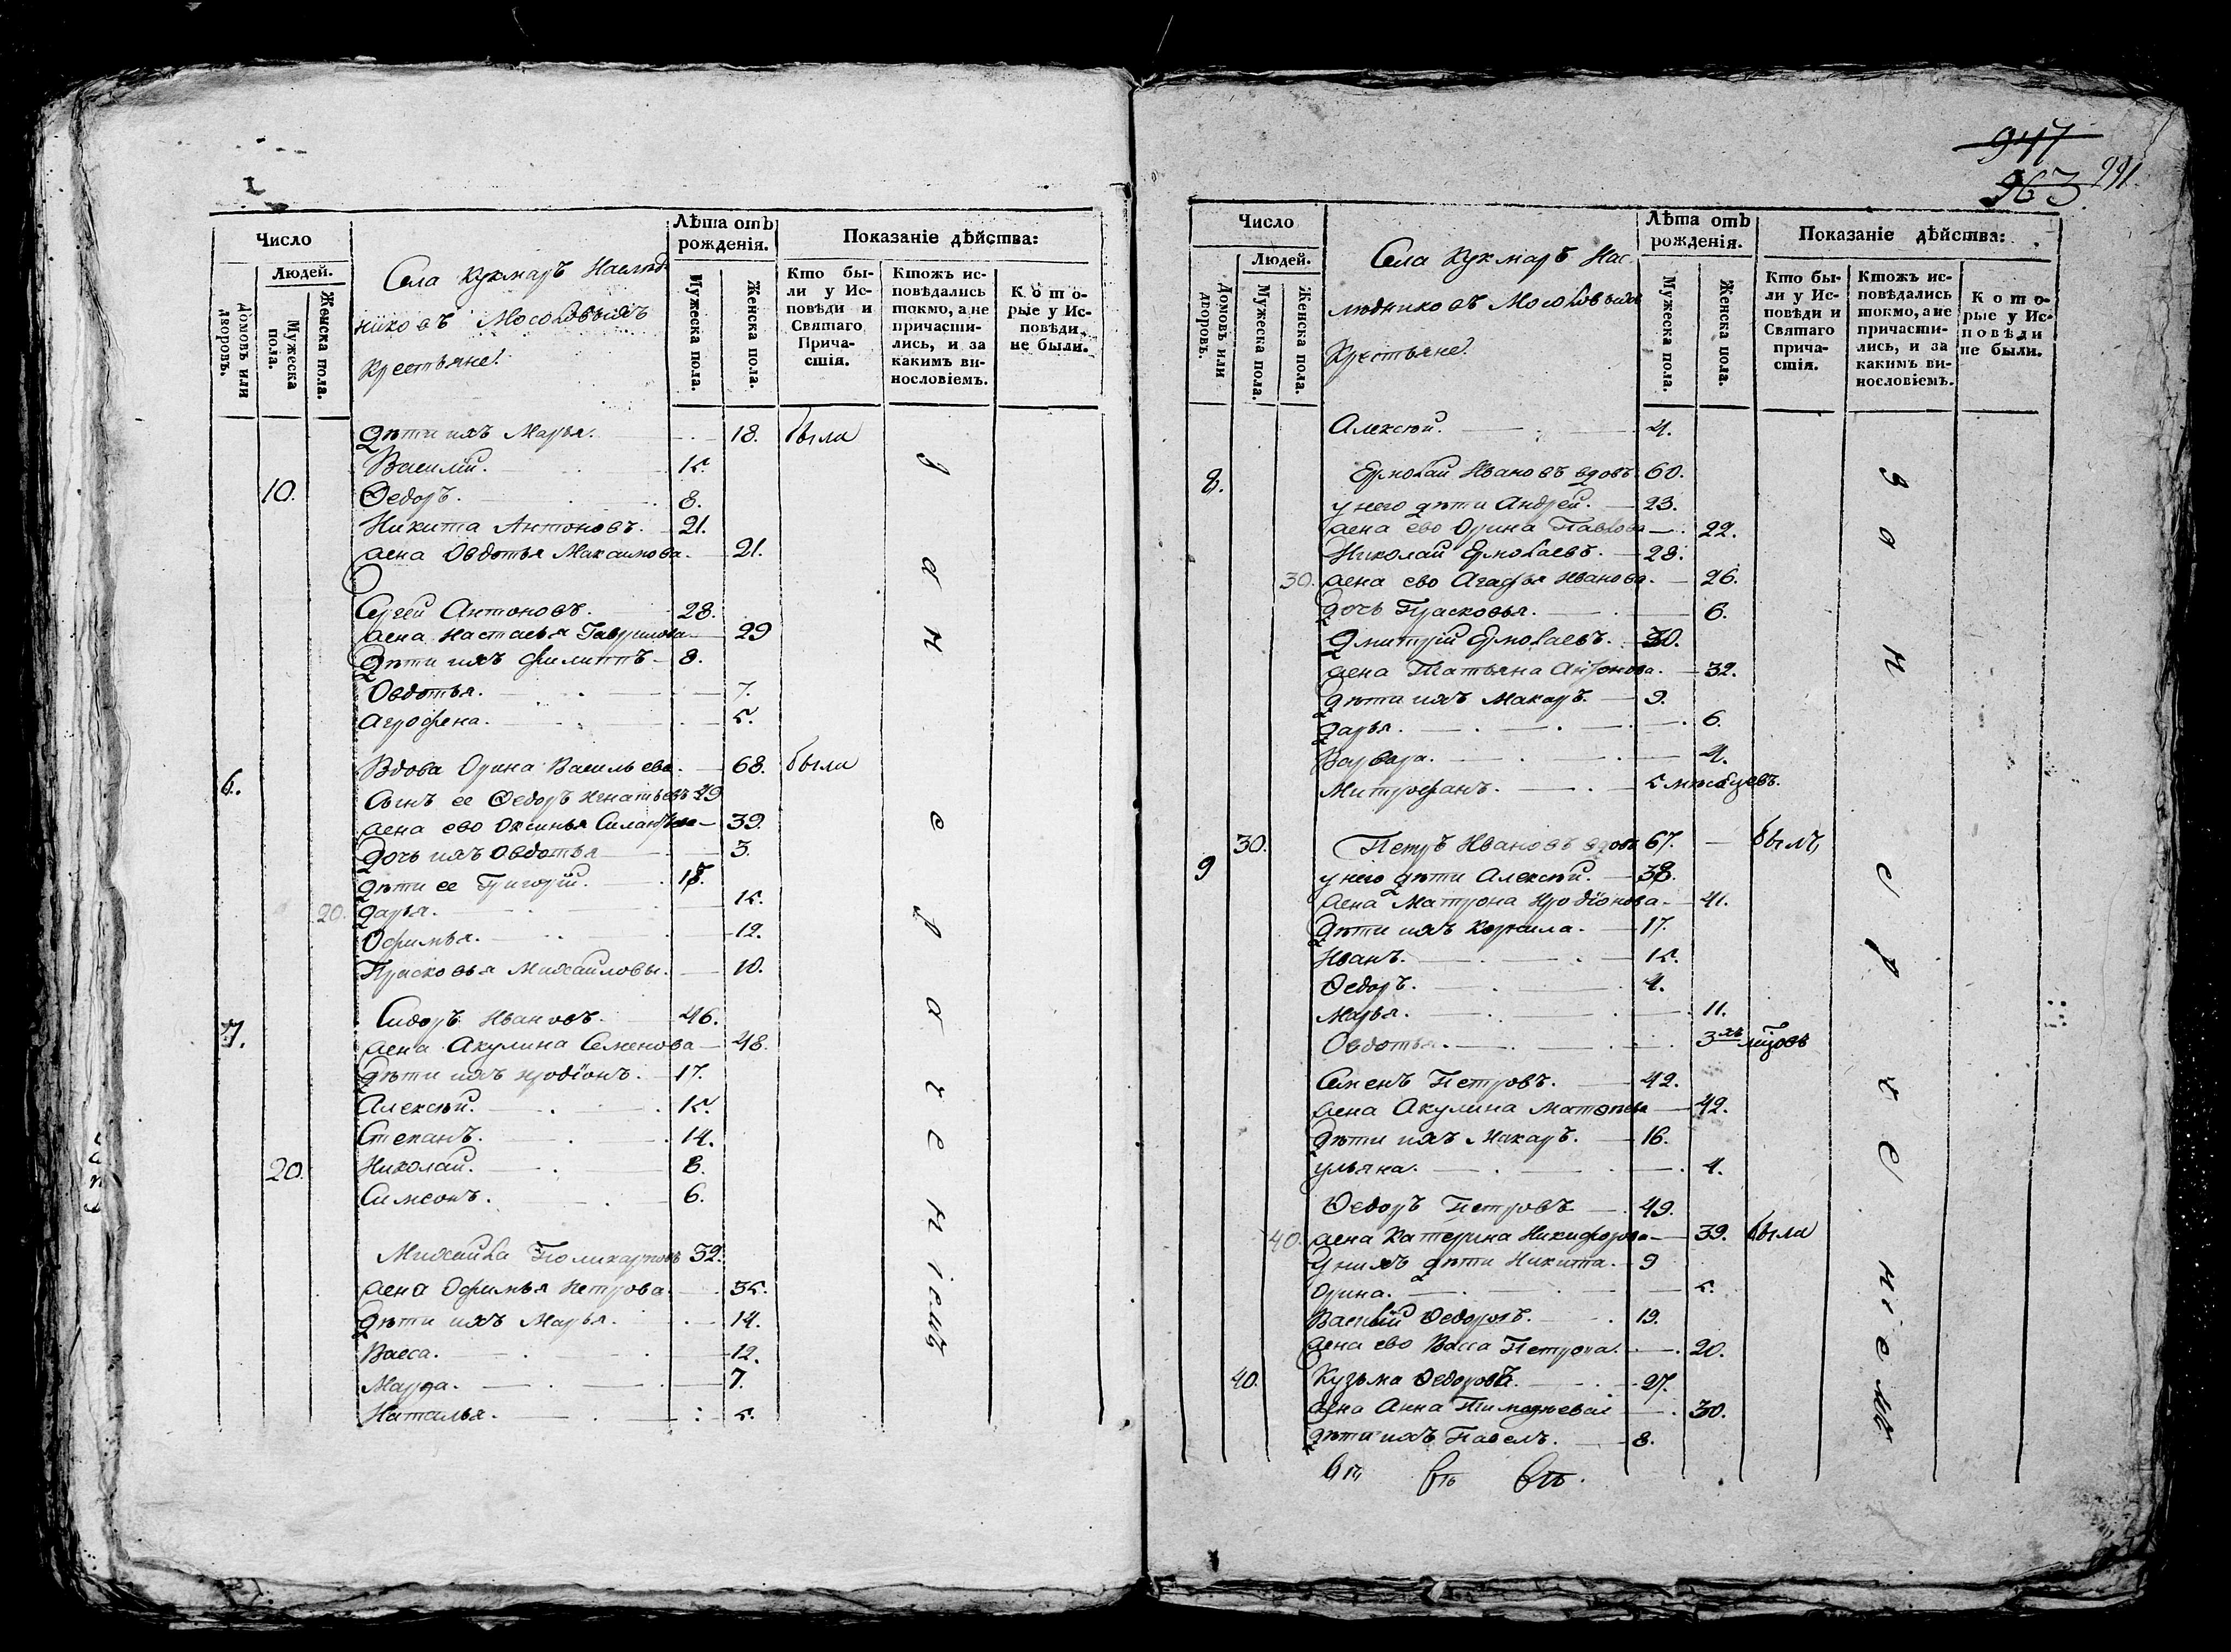 Число
Людей.
Домовъ или дворовъ.
Мужеска пола.
Женска пола.
Села Кукмаръ Наслѣд
никовъ Мосоловыхъ
Крестьяне.
Лѣта отъ рожденія.
Мужеска пола.
Женска пола.
Показаніе дѣйства:
Кто бы-
ли у Ис-
повѣди и
Святаго
Прича-
стія.
Ктожъ ис-
повѣдались
токмо, а не
причасти-
лись, и за
какимъ ви-
нословіемъ.
Кото-
рые у Ис-
повѣди
не были.
Дѣти ихъ Марья. 18. была
Василій. 15.
10. Ѳедоръ. 8.
Никита Антоновъ. 21.
жена Овдотья Максимова. 21.
Сергей Антоновъ. 28.
жена Настасья Гаврилова 29
Дѣти ихъ Филиппъ 8.
Овдотья. 7.
Агрофена. 5.
6. Вдова Орина Васильева. 68. были
Сынъ ее Ѳедоръ Игнатьевъ 49
жена ево Оксинья Силантьева 39.
Дочь ихъ Овдотья 3.
дѣти ее Григорій. 18.
20. дарья. 15.
Офимья. 12.
Прасковья Михайловы. 10.
7. Сидоръ Ивановъ. 46.
жена Акулина Семенова 48.
дѣти ихъ Иродіонъ. 17.
Алексѣй. 15.
Степанъ. 14.
20. Николай. 8.
Симеонъ. 6.
Михайла Поликарповъ 32.
жена Офимья Петрова. 35.
Дѣти ихъ Марья. 14.
Васса. 12.
Марѳа. 7.
Наталья. 5.
за нерачениемъ
947
963 291
Число
Людей.
Домовъ или дворовъ.
Мужеска пола.
Женска пола.
Села Кукмаръ Нас
лѣдниковъ Мосоловыхъ
Крестьяне.
Лѣта отъ рожденія.
Мужеска пола.
Женска пола.
Показаніе дѣйства:
Кто бы-
ли у Ис-
повѣди и
Святаго
прича-
стія.
Ктожъ ис-
повѣдались
токмо, а не
причасти-
лись, и за
какимъ ви-
нословіемъ.
Кото-
рые у Ис-
повѣди
не были.
Алексѣй. 4.
8. Ермолай Ивановъ вдовъ 60.
у него дѣти Андрей. 23.
жена ево Орина Павлова 22.
Николай Ермолаевъ. 28.
30. жена ево Агафья Иванова. 26.
дочь Прасковья. 6.
Дмитрій Ермолаевъ. 30.
жена Татьяна Антонова. 32.
дѣти ихъ Макаръ. 9.
дарья. 6.
Варвара. 4.
Митрофанъ. 5 мѣсяцевъ.
9 30. Петръ Ивановъ вдовъ 67. былъ
у него дѣти Алексѣй. 38.
жена Матрона Иродіонова. 41.
дѣти ихъ Корнила. 17.
Иванъ. 15.
Ѳедоръ. 4.
Марья. 11.
Овдотья. 3хъ мцовъ
Семенъ Петровъ. 42.
жена Акулина Матвѣева 42.
дѣти ихъ Макаръ. 16.
ульяна. 4.
Ѳедоръ Петровъ 49.
40. жена Катерина Никифорова 39. была
У нихъ дѣти Никита. 9
Орина. 5.
Василій Ѳедоровъ. 19.
жена ево Васса Петрова. 20.
40. Кузьма Ѳедоровъ. 27.
жена Анна Тимоѳеева 30.
дѣти ихъ Павелъ. 8.
за нерачениемъ